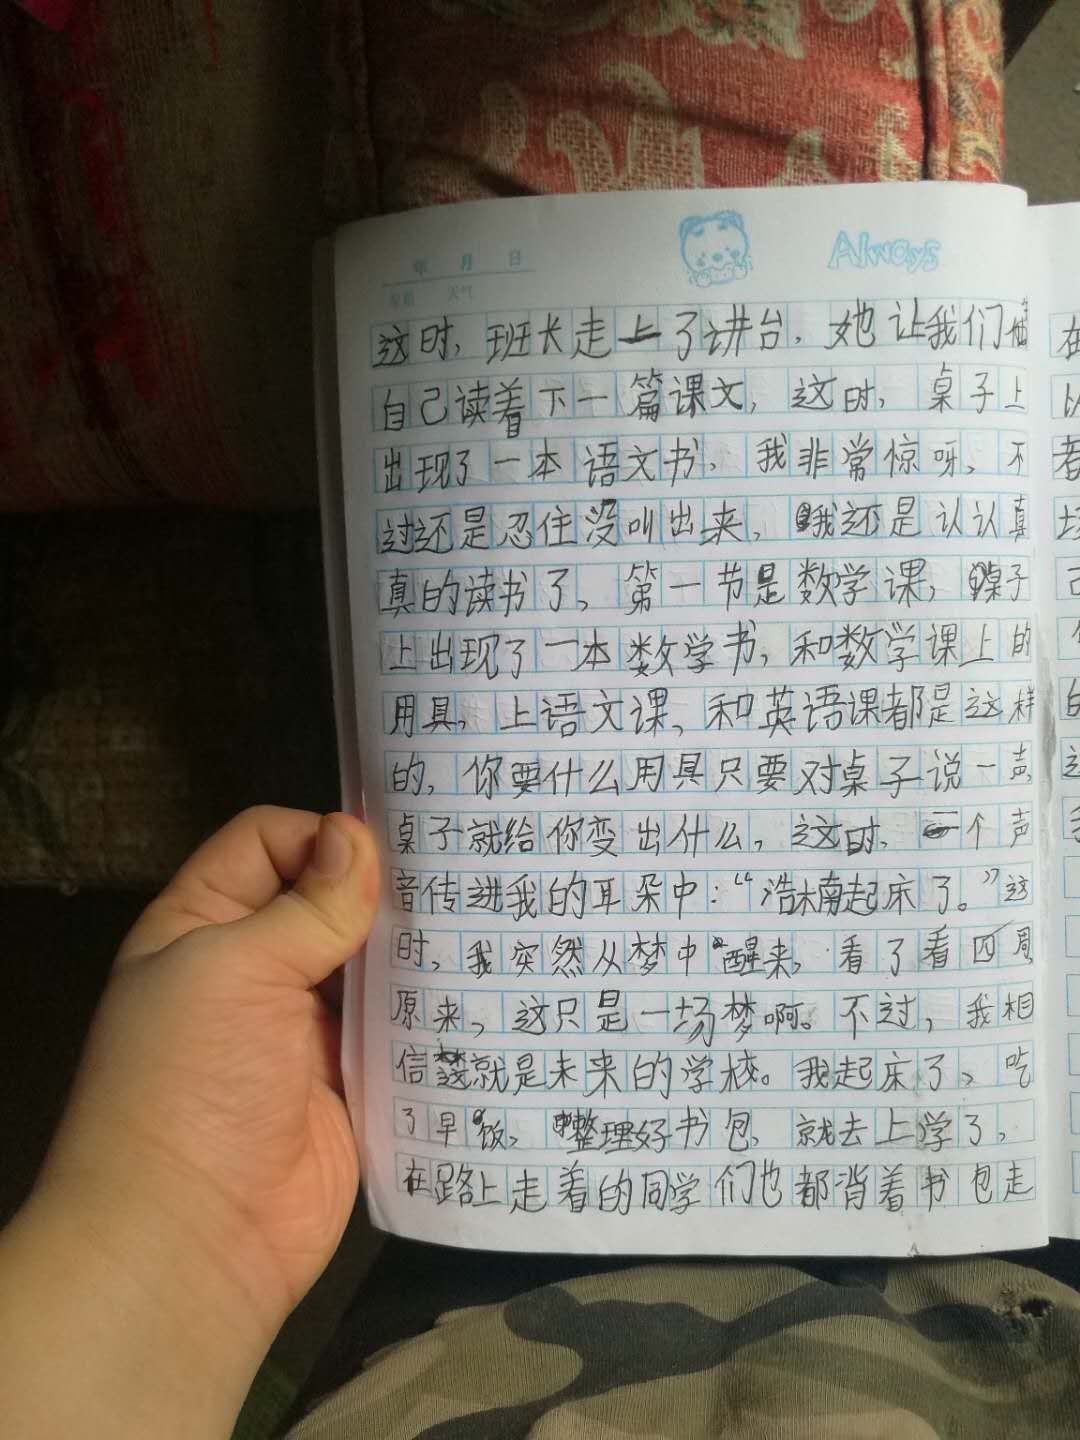 年 月 日
星期 天气
Always
这时，班长走上了讲台，她让我们
自己读着下一篇课文，这时，桌子上
出现了一本语文书，我非常惊呀，不
过还是忍住没叫出来，我还是认认真
真的读书了，第一节是数学课，桌子
上出现了一本数学书，和数学课上的
用具，上语文课，和英语课都是这样
的，你要什么用具只要对桌子说一声，
桌子就给你变出什么，这时，一个声
音传进我的耳朵中：“浩楠起床了。”这
时，我突然从梦中醒来，看了看四周
原来，这只是一场梦啊。不过，我相
信这就是未来的学校。我起床了，吃
了早饭，整理好书包，就去上学了，
在路上走着的同学们也都背着书包走